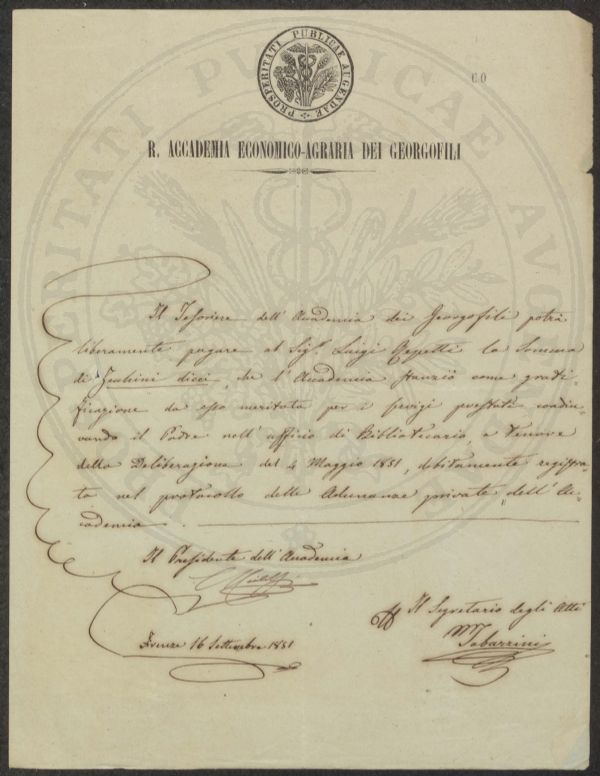 PROSPERITATI PUBLICAE AUGENDAE
C.O
R. ACCADEMIA ECONOMICO-AGRARIA DEI GEORGOFILI
Il Tesoriere dell'Accademia dei Georgofili potrà
liberamente pagare al Sig.r Luigi la Somma
di Zecchini dieci, che l'Accademia stanziò come grati-
ficazione da esso meritata per i servigi prestati coadiu-
vando il Padre nell'uffizio di Bibliotecario, a tenore
della Deliberazione del 4 Maggio 1851, debitamente registra-
ta nel protocollo delle Adunanze private dell'Ac-
cademia.
Il Presidente dell'Accademia
Il Segretario degli Atti
M Tabarrini
Firenze 16 Settembre 1851